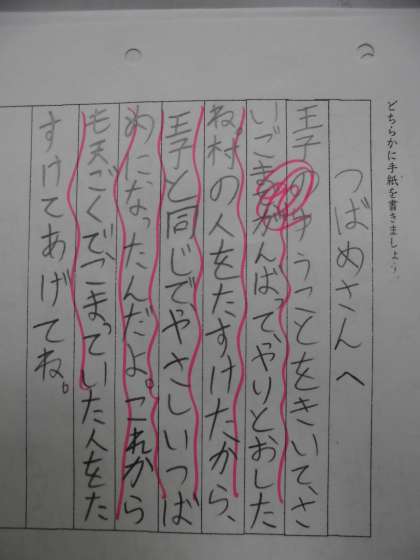 どちらかに手紙を書きましょう。
つばめさんへ
王子のゆうことをきいて、さ
いごまでがんばって、やりとおした
ね。村の人をたすけたから、
王子と同じでやさしいつば
めになったんだよ。これから
も天ごくでこまっていた人をた
すけてあげてね。